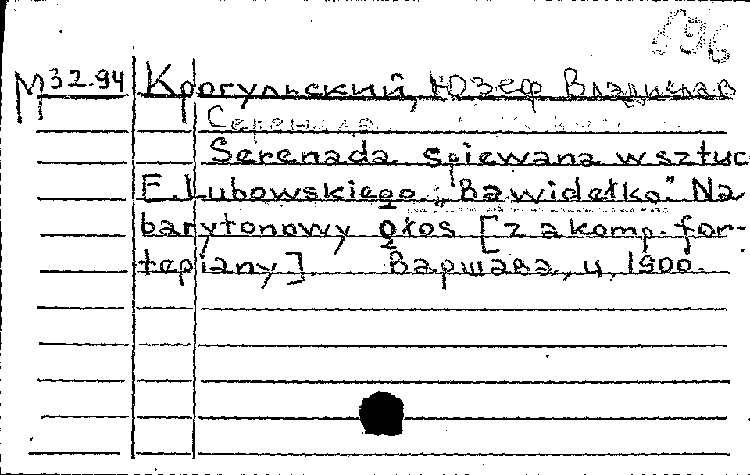 896
М 32.94 Крогульский, Юзеф Владислав
Серенада
Serenada spiewana w sztuc
E. Lubowskiego „Bawidełko". Na
barytonowy głos [z akomp. for-
tepiany] Варшава, ц. 1900.